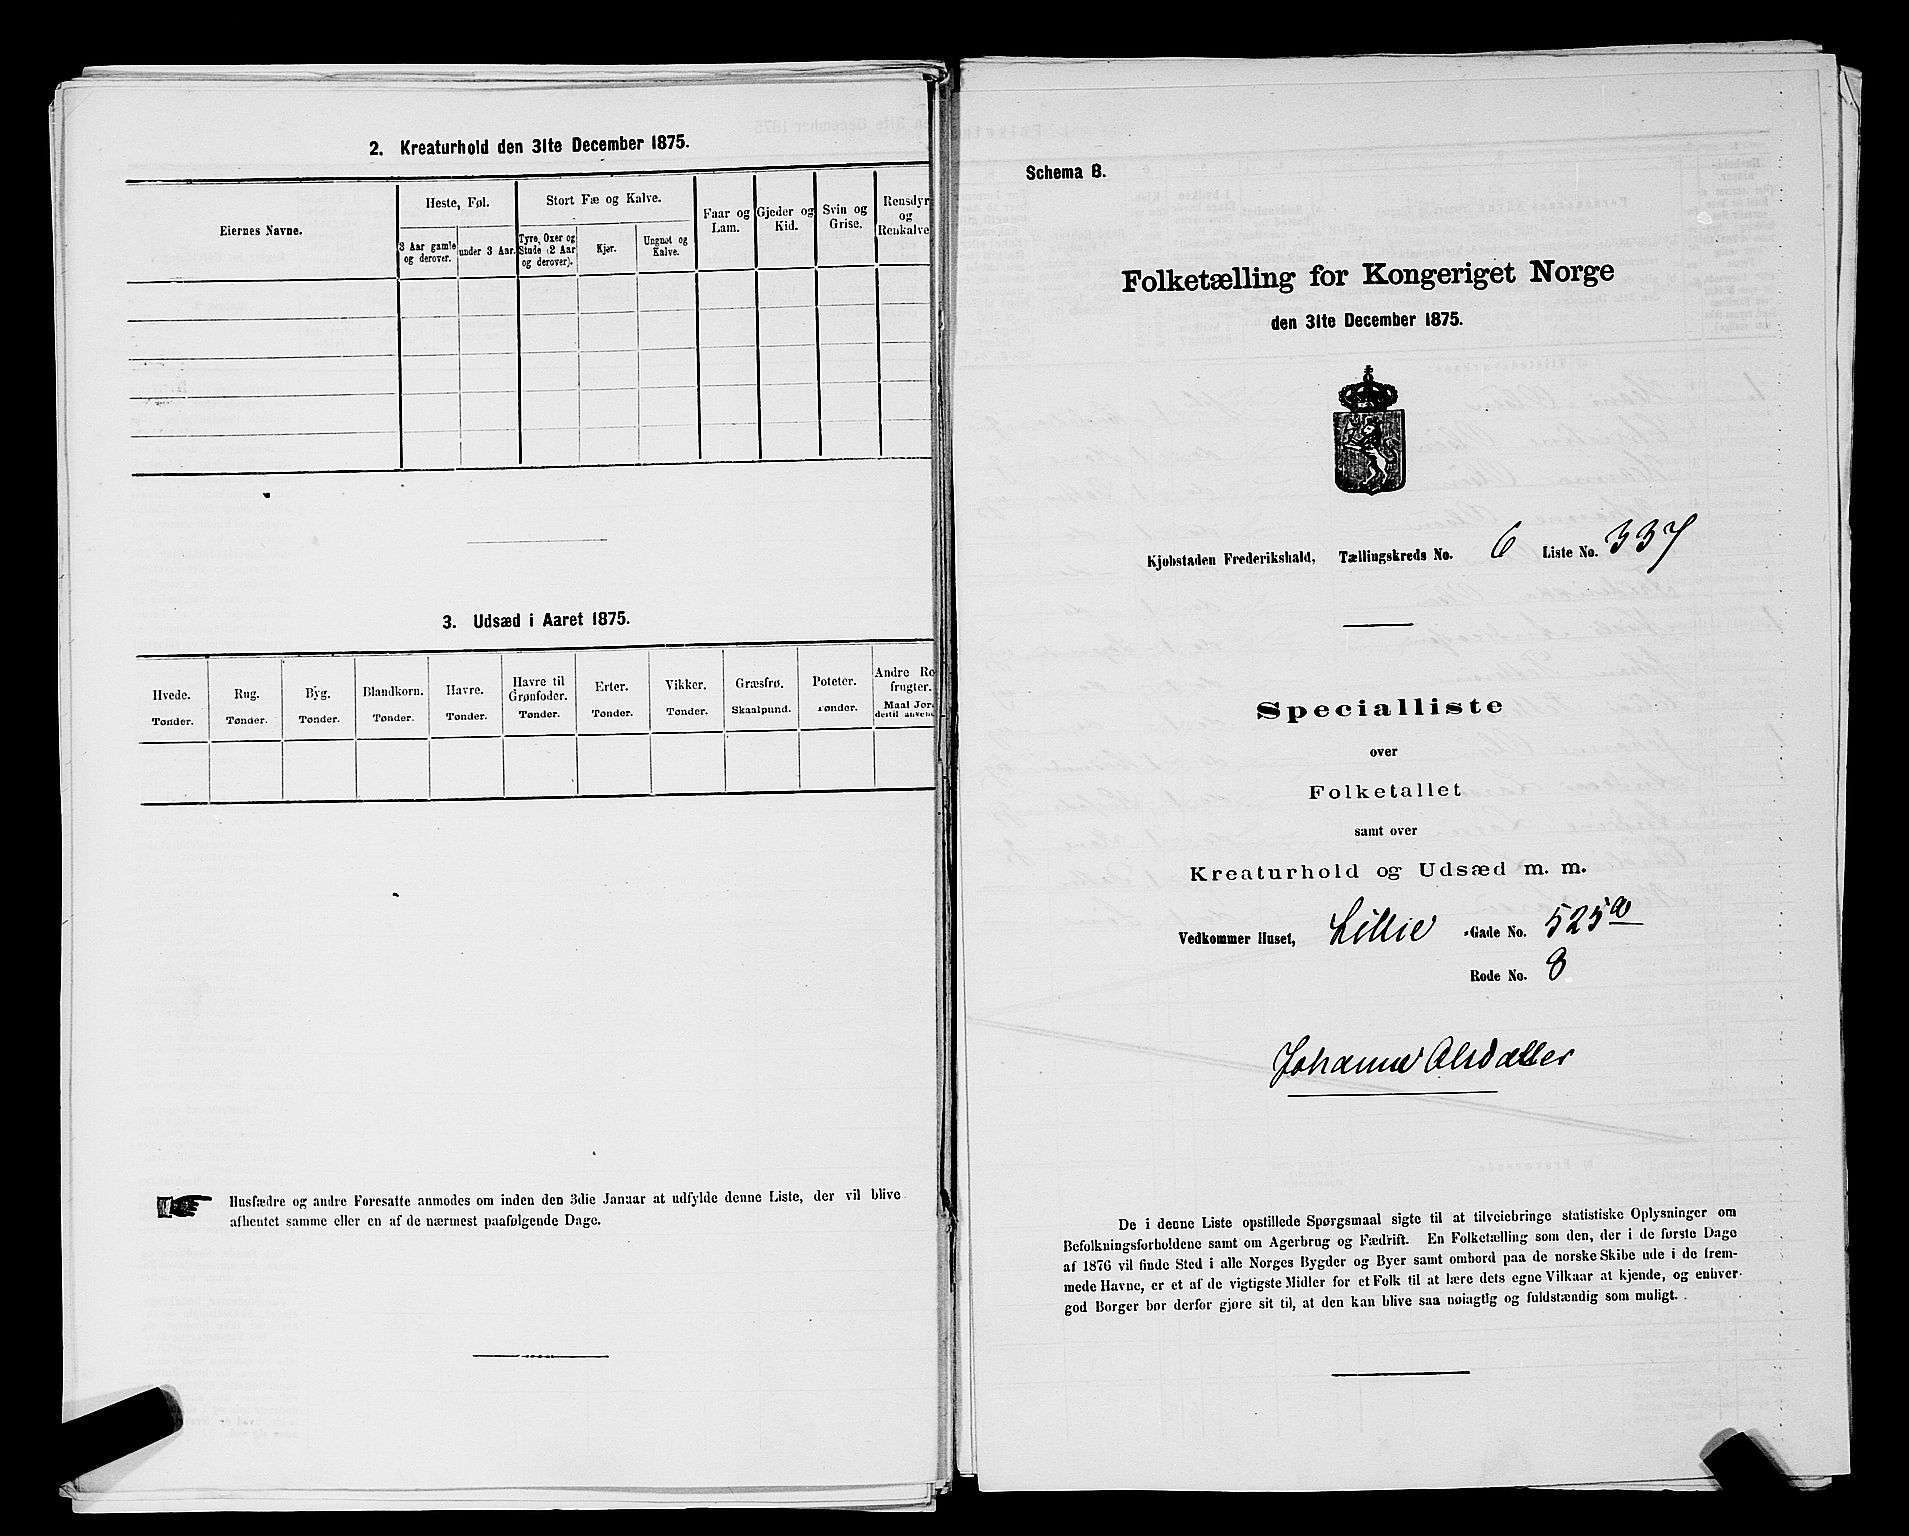 2. Kreaturhold den 31te December 1875.
Eiernes Navne.
Heste, Føl.
3 Aar gamle og derover.
under 3 Aar.
Stort Fæ og Kalve.
Tyre, Oxer og Stude (2 Aar og derover).
Kjør.
Ungnøt og Kalve.
Faar og Lam.
Gjeder og Kid.
Svin og Grise.
Rensdyr og Renkalve
3. Udsæd i Aaret 1875.
Hvede. Tønder.
Rug. Tønder.
Byg. Tønder.
Blandkorn. Tønder.
Havre. Tønder.
Havre til Grønfoder. Tønder.
Erter. Tønder.
Vikker. Tønder.
Græsfrø. Skaalpund.
Poteter. Tønder.
Andre Ro frugter. Maal Jor destil anvend
Husfædre og andre Foresatte anmodes om inden den 3die Januar at udfylde denne Liste, der vil blive
afhentet samme eller en af de nærmest paafølgende Dage.
Schema B.
Folketælling for Kongeriget Norge
den 31te December 1875.
Kjøbstaden Frederikshald, Tællingskreds No. 6 Liste No. 337
Specialliste
over
Folketallet
samt over
Kreaturhold og Udsæd m. m.
Vedkommer Huset, Lillie -Gade No. 525a
Rode No. 8
Johanne Olsdatter
De i denne Liste opstillede Spørgsmaal sigte til at tilveiebringe statistiske Oplysninger om
Befolkningsforholdene samt om Agerbrug og Fædrift. En Folketælling som den, der i de første Dage
af 1876 vil finde Sted i alle Norges Bygder og Byer samt ombord paa de norske Skibe ude i de frem-
mede Havne, er et af de vigtigste Midler for et Folk til at lære dets egne Vilkaar at kjende, og enhver
god Borger bør derfor gjøre sit til, at den kan blive saa nøiagtig og fuldstændig som muligt.